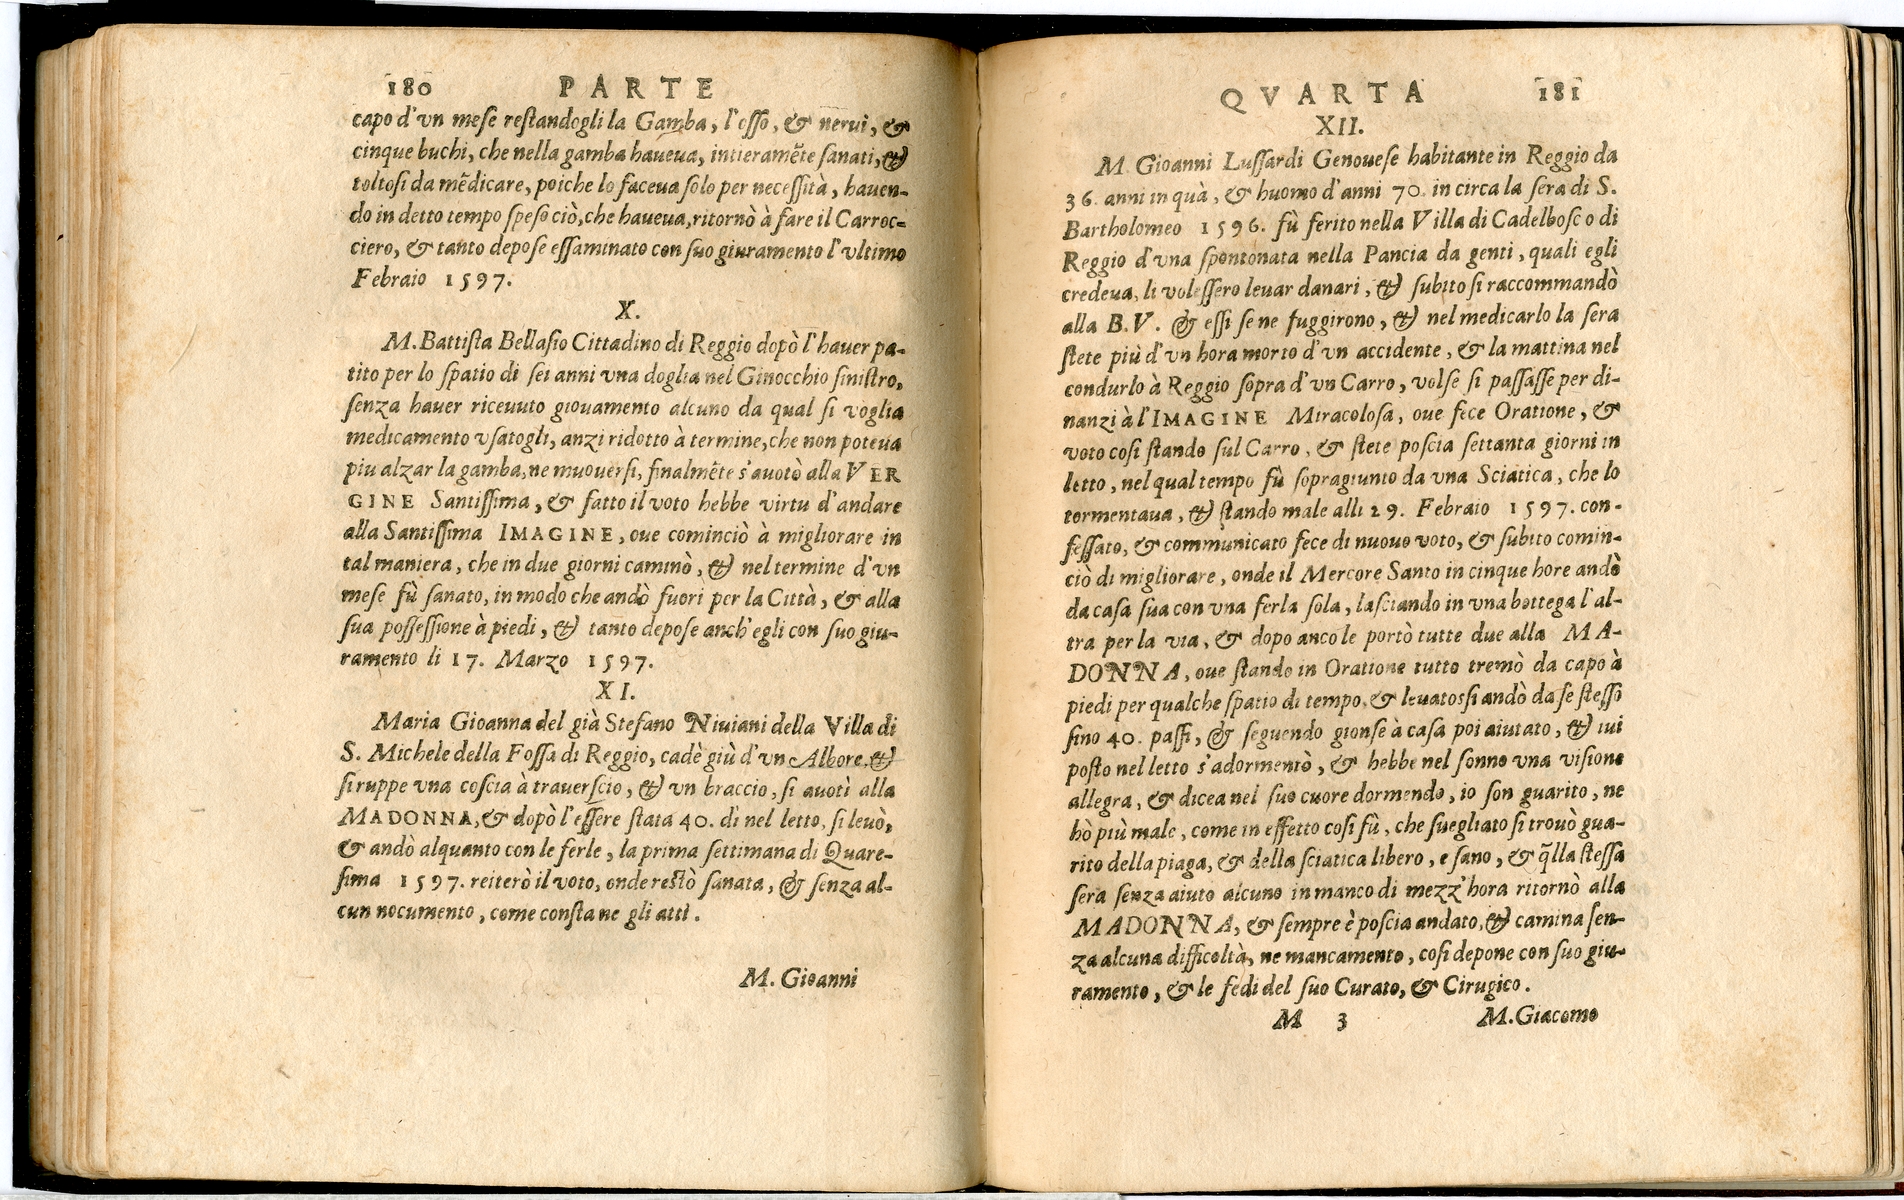 180 PARTE
capo d'vn mese restandogli la Gamba, l'osso, & nerui, &
cinque buchi, che nella gamba haueua, intieramẽte sanati, &
toltosi da mẽdicare, poiche lo faceua solo per necessità, hauen-
do in detto tempo speso ciò, che haueua, ritornò à fare il Carroc-
ciero, & tanto depose essaminato con suo giuramento l'vltimo
Febraio 1597.
X.
M. Battista Bellasio Cittadino di Reggio dopò l'hauer pa-
tito per lo spatio di sei anni vna doglia nel Ginocchio sinistro,
senza hauer riceuuto giouamento alcuno da qual si voglia
medicamento vsatogli, anzi ridotto à termine, che non poteua
piu alzar la gamba, ne muouersi, finalmẽte s'auotò alla VER
GINE Santissima, & fatto il voto hebbe virtu d'andare
alla Santissima IMAGINE, oue cominciò à migliorare in
tal maniera, che in due giorni caminò, & nel termine d'vn
mese fù sanato, in modo che andò fuori per la Città, & alla
sua possessione à piedi, & tanto depose anch'egli con suo giu-
ramento li 17. Marzo 1597.
XI.
Maria Gioanna del già Stefano Niuiani della Villa di
S. Michele della Fossa di Reggio, cadè giù d'vn Albore, &
si ruppe vna coscia à trauerscio, & vn braccio, si auotì alla
MADONNA, & dopò l'essere stata 40. dì nel letto, si leuò,
& andò alquanto con le ferle, la prima settimana di Quare-
sima 1597. reiterò il voto, onde restò sanata, & senza al-
cun nocumento, come consta ne gli atti.
M. Gioanni
QVARTA 181
XII.
M. Gioanni Lussardi Genouese habitante in Reggio da
36. anni in quà, & huomo d'anni 70. in circa la sera di S.
Bartholomeo 1596. fù ferito nella Villa di Cadelbosco di
Reggio d'vna spontonata nella Pancia da genti, quali egli
credeua, li volessero leuar danari, & subito si raccommandò
alla B. V. & essi se ne fuggirono, & nel medicarlo la sera
stete più d'vn hora morto d'vn accidente, & la mattina nel
condurlo à Reggio sopra d'vn Carro, volse si passasse per di-
nanzi à l'IMAGINE Miracolosa, oue fece Oratione, &
voto cosi stando sul Carro, & stete poscia settanta giorni in
letto, nel qual tempo fù sopragiunto da vna Sciatica, che lo
tormentaua, & stando male alli 29. Febraio 1597. con-
fessato, & communicato fece di nuouo voto, & subito comin-
ciò di migliorare, onde il Mercore Santo in cinque hore andò
da casa sua con vna ferla sola, lasciando in vna bottega l'al-
tra per la via, & dopo anco le portò tutte due alla MA-
DONNA, oue stando in Oratione tutto tremò da capo à
piedi per qualche spatio di tempo, & leuatossi andò da se stesso
sino 40. passi, & seguendo gionse à casa poi aiutato, & iui
posto nel letto s'adormentò, & hebbe nel sonno vna visione
allegra, & dicea nel suo cuore dormendo, io son guarito, ne
hò più male, come in effetto cosi fù, che suegliato si trouò gua-
rito della piaga, & della sciatica libero, e sano, & q̃lla stessa
sera senza aiuto alcuno in manco di mezz'hora ritornò alla
MADONNA, & sempre è poscia andato, & camina sen-
za alcuna difficoltà, ne mancamento, cosi depone con suo giu-
ramento, & le fedi del suo Curato, & Cirugico.
M 3 M. Giacomo